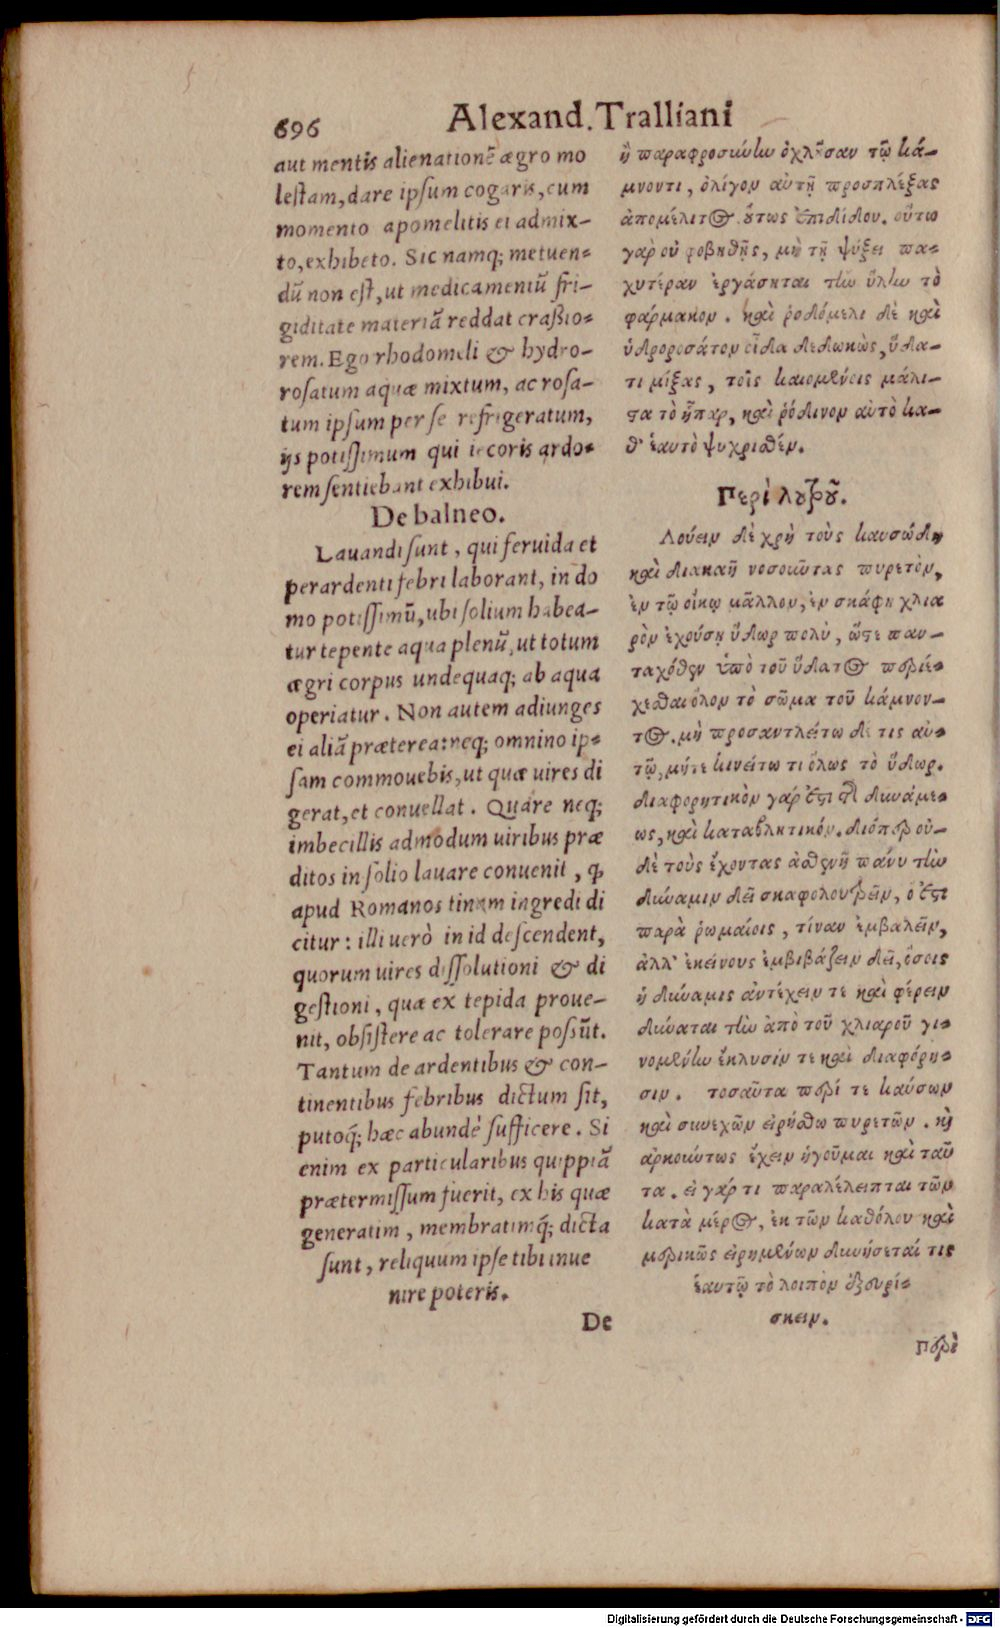 696
Alexand. Tralliani
aut mentis alienationē ægro mo
lestam, dare ipsum cogaris, cum
momento apomelitis ei admix-
to, exhibeto. Sic namq; metuen-
dū non est, ut medicamentū fri-
giditate materiā reddat craßio-
rem. Ego rhodomeli & hydro-
rosatum aquæ mixtum, ac rosa-
tum ipsum per se refrigeratum,
ijs potissimum qui iecoris ardo-
rem sentiebant exhibui.
De balneo.
Lauandi sunt, qui feruida et
perardenti febri laborant, in do
mo potissimū, ubi solium habea-
tur tepente aqua plenū, ut totum
ægri corpus undequaq; ab aqua
operiatur. Non autem adiunges
ei aliā præterea: neq; omnino ip-
sam commouebis, ut quæ uires di
gerat, et conuellat. Quare neq;
imbecillis admodum uiribus præ
ditos in solio lauare conuenit, ꝙ
apud Romanos tinam ingredi di
citur: illi uerò in id descendent,
quorum uires dissolutioni & di
gestioni, quæ ex tepida proue-
nit, obsistere ac tolerare possūt.
Tantum de ardentibus & con-
tinentibus febribus dictum sit,
putoq́; hæc abundè sufficere. Si
enim ex particularibus quippiā
prætermissum fuerit, ex his quæ
generatim, membratimq́; dicta
sunt, reliquum ipse tibi inue
nire poteris.
De
ἢ παραφροσύνην ὀχλοῦσαν τῷ κά-
μνοντι, ὀλίγον αὐτῇ προσπλέξας
ἀπομέλιτος οὕτως ἐπιδίδου. οὕτω
γὰρ οὐ φοβηθῇς, μὴ τῇ ψύξει πα-
χυτέραν ἐργάσηται τὴν ὕλην τὸ
φάρμακον. καὶ ῥοδόμελι δὲ καὶ
ὑδροροσάτον οἶδα δεδωκὼς, ὕδα-
τι μίξας, τοῖς καιομένοις μάλι-
στα τὸ ἧπαρ, καὶ ῥόδινον αὐτὸ κα-
θ' ἑαυτὸ ψυχρισθέν.
Περὶ λουτροῦ.
Λούειν δὲ χρὴ τοὺς καυσώδη
καὶ διακαῆ νοσοῦντας πυρετὸν,
ἐν τῷ οἴκῳ μᾶλλον, ἐν σκάφῃ χλια
ρὸν ἐχούσῃ ὕδωρ πολὺ, ὥστε παν-
ταχόθεν ὑπὸ τοῦ ὕδατος περιέ-
χεσθαι ὅλον τὸ σῶμα τοῦ κάμνον-
τος. μὴ προσαντλείτω δέ τις αὐ-
τῷ, μήτε κινείτω τι ὅλως τὸ ὕδωρ.
διαφορητικὸν γάρ ἐστι τῆς δυνάμε-
ως, καὶ καταβλητικόν. διόπερ οὐ-
δὲ τοὺς ἔχοντας ἀσθενῆ πάνυ τὴν
δύναμιν δεῖ σκαφολουτρεῖν, ὅ ἐστι
παρὰ ῥωμαίοις, τίναν ἐμβαλεῖν,
ἀλλ' ἐκείνους ἐμβιβάζειν δεῖ, ὅσοις
ἡ δύναμις ἀντέχειν τε καὶ φέρειν
δύναται τὴν ἀπὸ τοῦ χλιαροῦ γι-
νομένην ἔκλυσίν τε καὶ διαφόρη-
σιν. τοσαῦτα περί τε καύσων
καὶ συνεχῶν εἰρήσθω πυρετῶν. καὶ
ἀρκούντως ἔχειν ἡγοῦμαι καὶ ταῦ
τα. εἰ γάρ τι παραλέλειπται τῶν
κατὰ μέρος, ἐκ τῶν καθόλου καὶ
μερικῶς εἰρημένων δυνήσεταί τις
ἑαυτῷ τὸ λοιπὸν ἐξευρί-
σκειν.
Περὶ
Digitalisierung gefördert durch die Deutsche Forschungsgemeinschaft - DFG